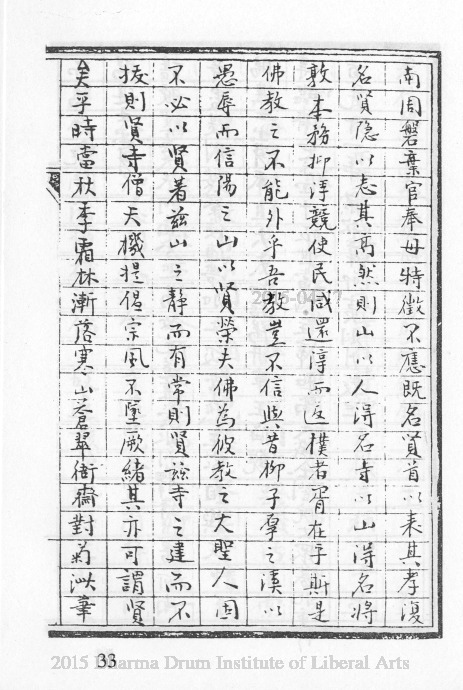 南周磐棄官奉母特徵不應既名賢首以表其孝復
名賢隐以志其高然則山以人得名寺以山得名將
敦本務抑浮競使民咸還淳而返樸者胥在乎斯是
佛教之不能外乎吾教豈不信與昔柳子厚之溪以
愚辱而信陽之山以賢榮夫佛為彼教之大聖人固
不必以賢著茲山之静而有常則賢茲寺之建而不
廢則賢寺僧天機提倡宗風不墜厥緒其亦可謂賢
矣乎時當秋季霜林漸落寒山蒼翠衙齋對菊泚筆
33
2015 Dharma Drum Institute of Liberal Arts